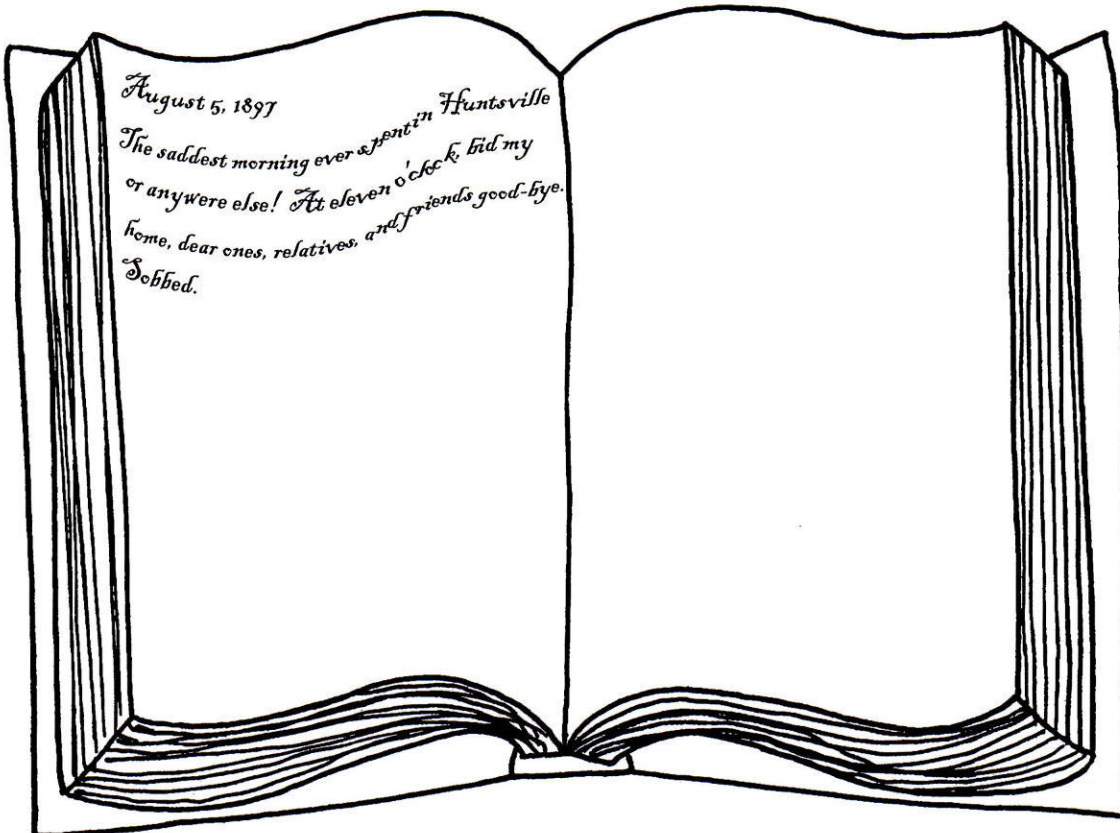 August 5, 1897
The saddest morning ever spent in Huntsville
or anywere else! At eleven o'clock, bid my
home, dear ones, relatives, and friends good-bye.
Sobbed.